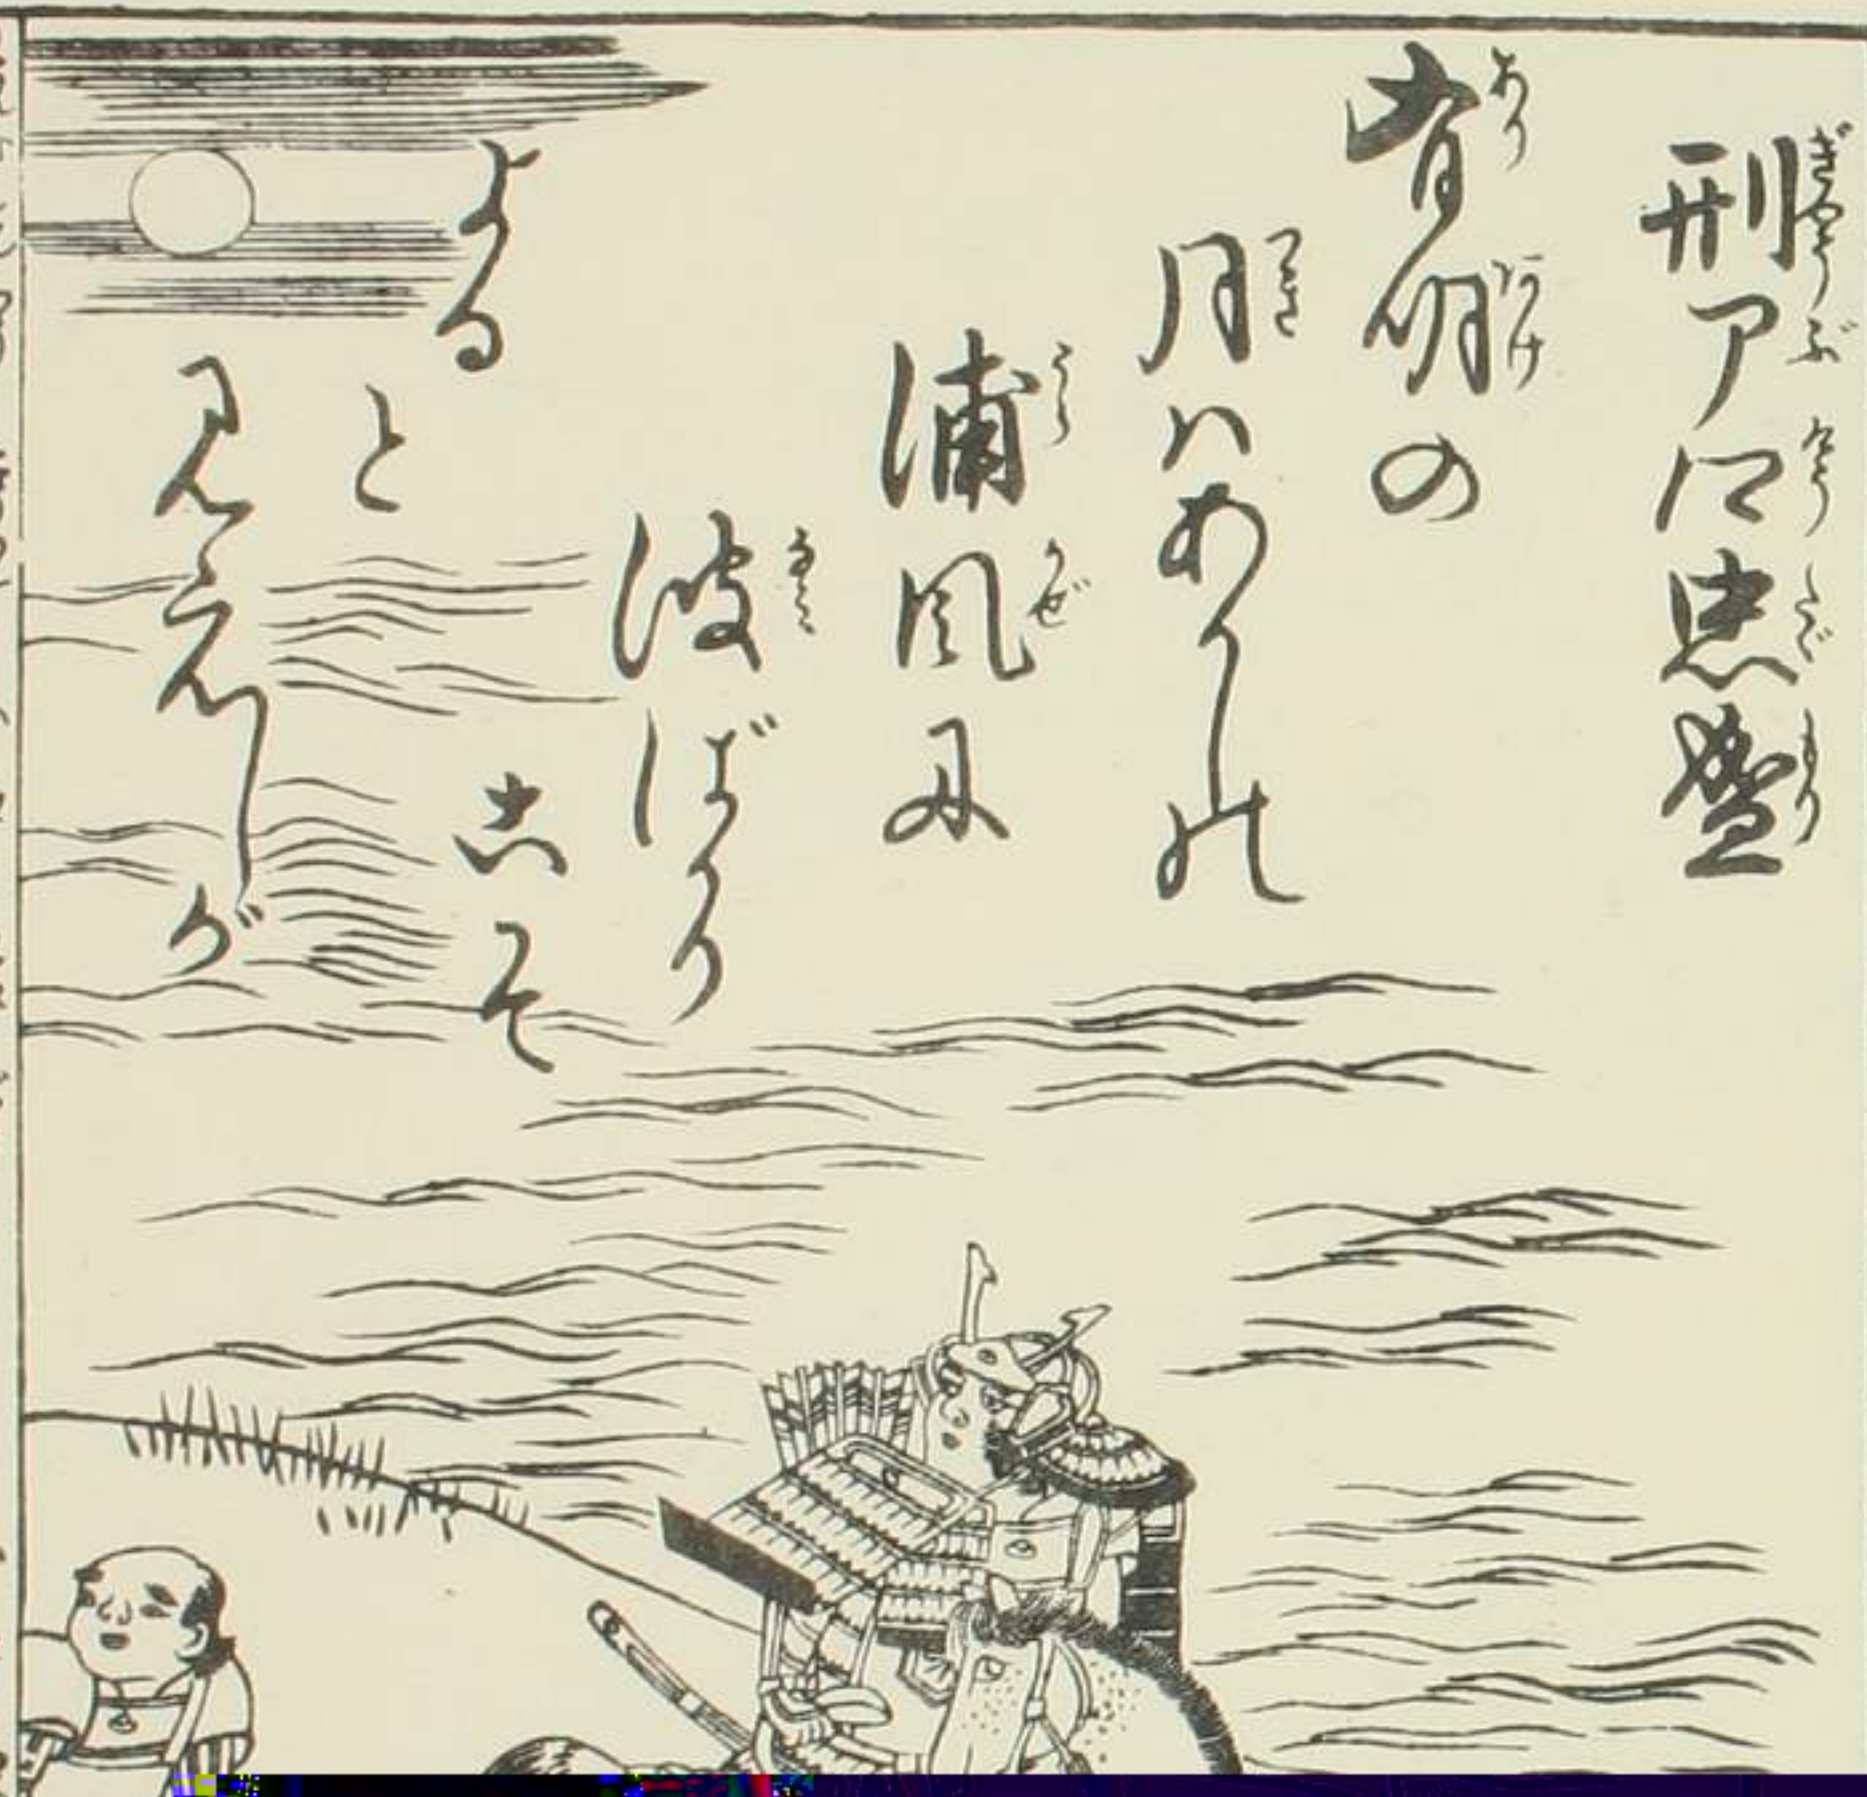 刑部卿忠盛
有明の
月ハあかしの
浦風に
波ばかり
こそ
よる
と
見えしが